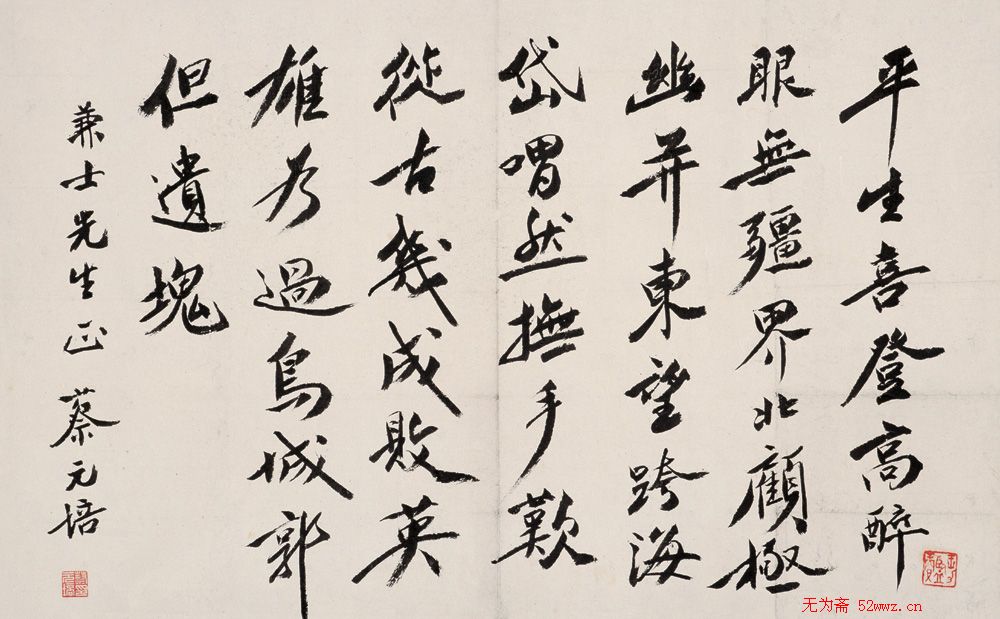 平生喜登高醉
眼無疆界北顧極
幽并東望跨海
岱喟然撫手歎
從古幾成敗英
雄為過鳥城郭
但遺塊
兼士先生正 蔡元培
无为斋 52wwz.cn